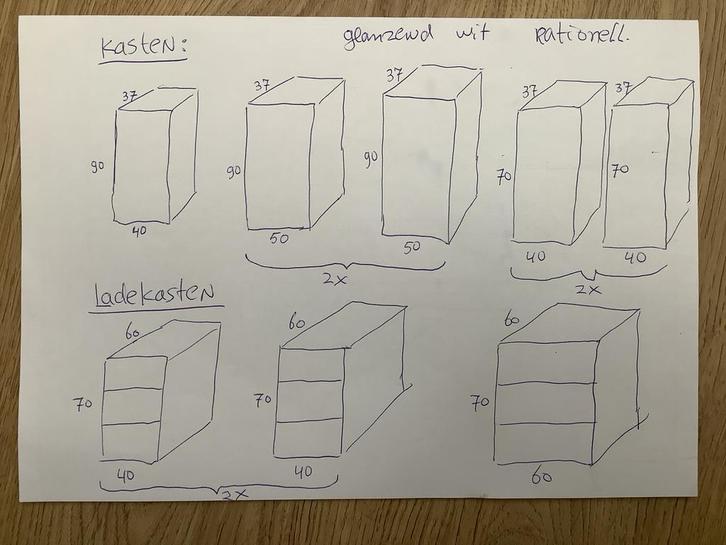 Kasten: glanzend wit rationell.
37 37 37 37 37
90 90 90 70 70
40 50 50 40 40
2x 2x
ladekasten
60 60 60
70 70 70
40 40 60
2x